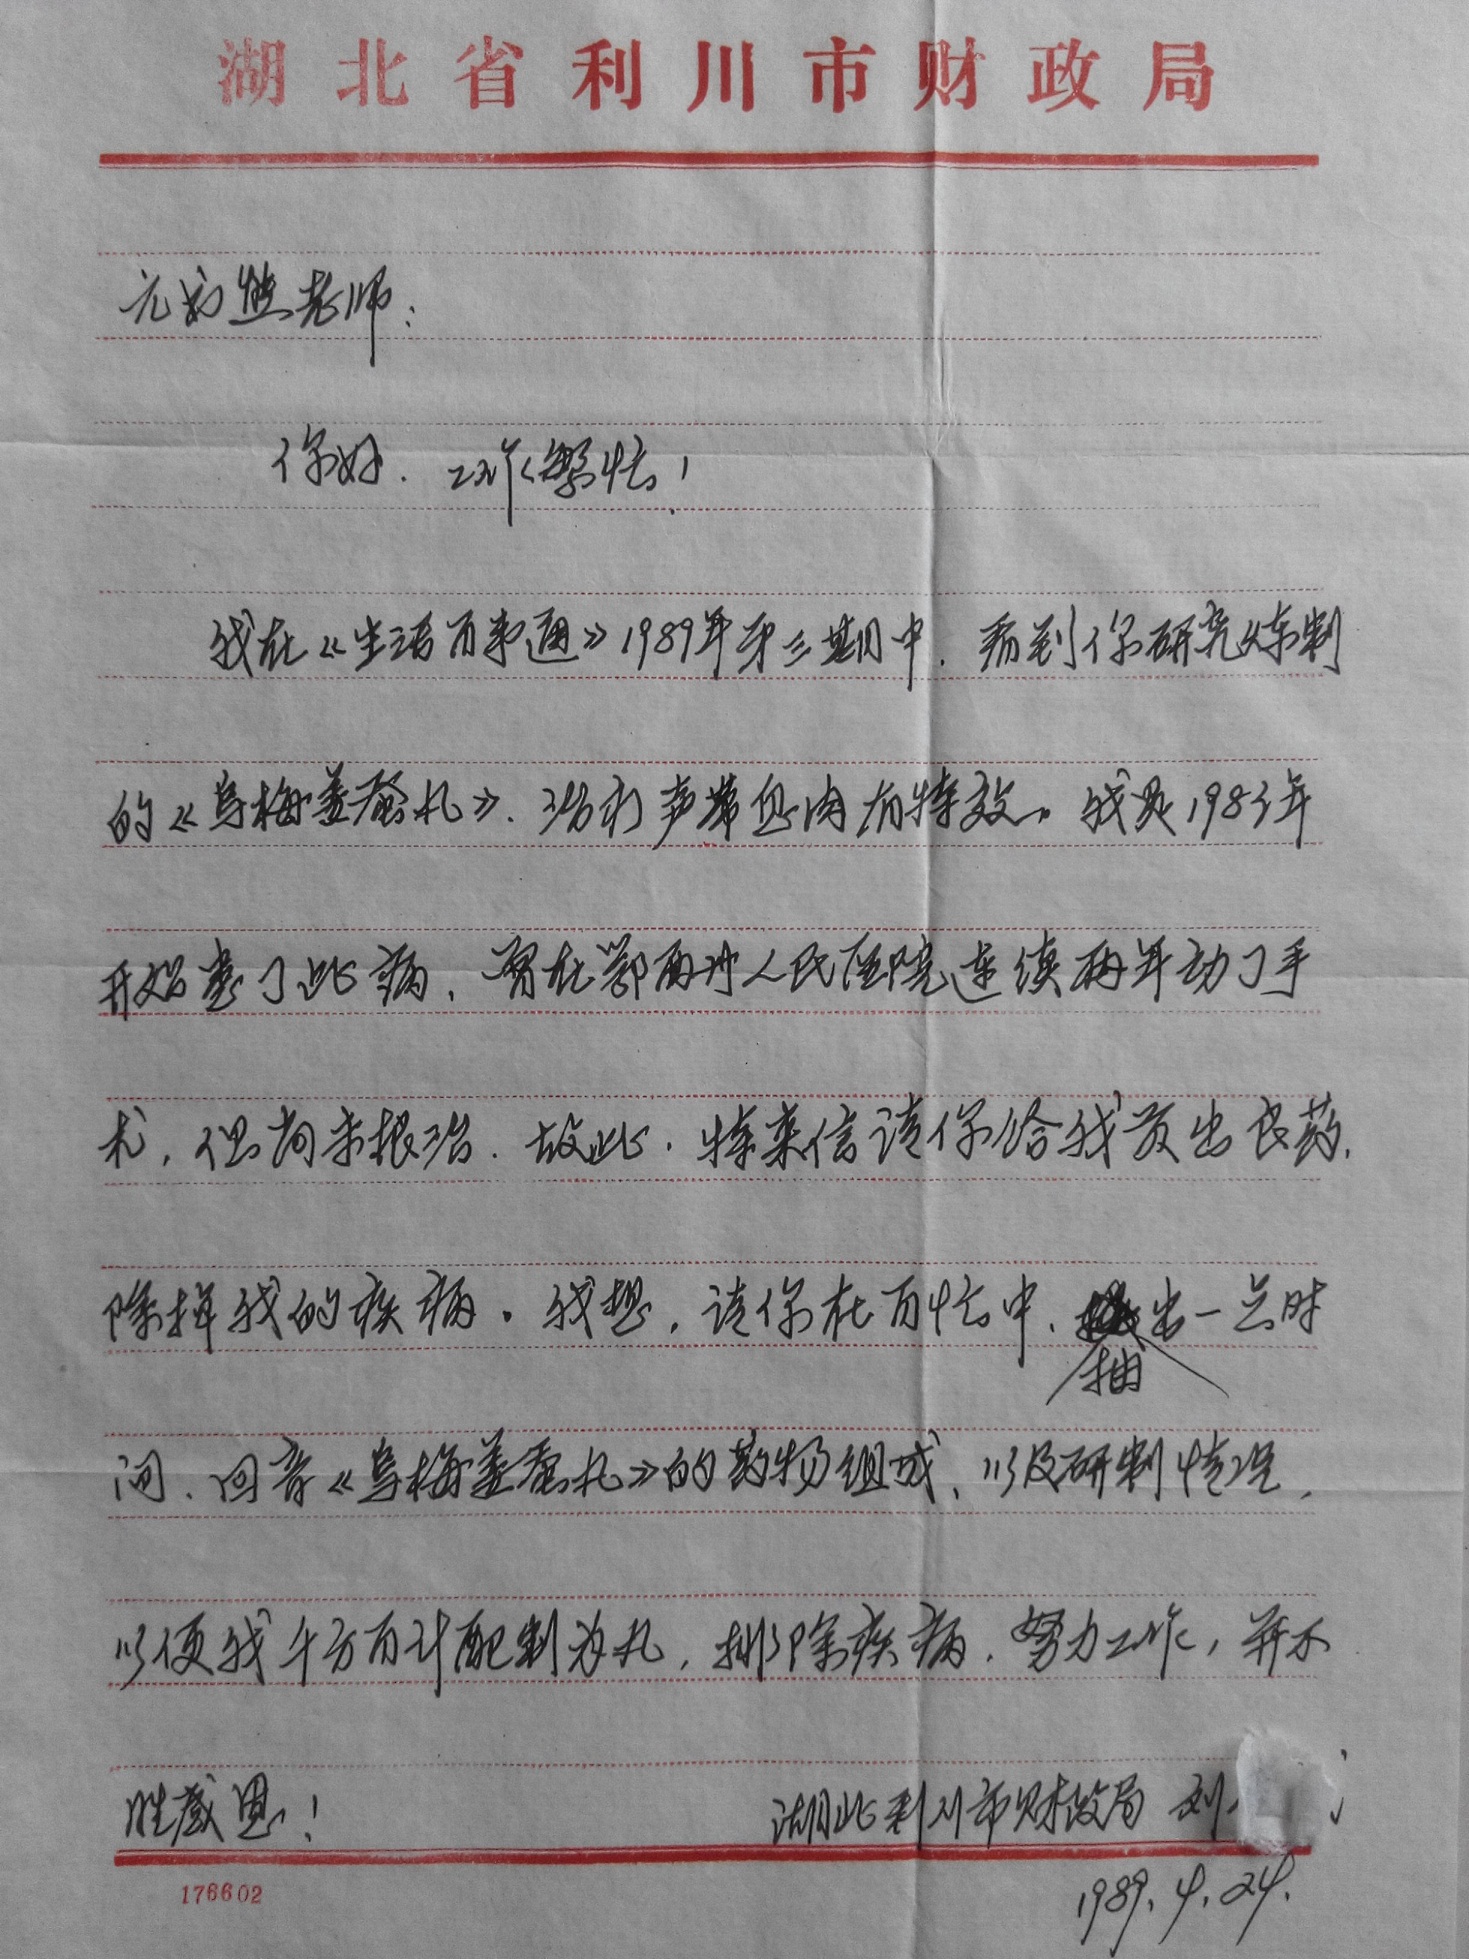 湖北省利川市财政局
老师:
你好.工作繁忙!
我在《生活百事通》1989年第三期中.看到你研究炼制
的《乌梅姜蚕丸》.治疗声带息肉有特效。我是1983年
开始患了此病、曾在鄂西州人民医院连续两年动了手
术,但尚未根治.故此.特来信请你给我贡出良药.
除掉我的疾病。我想,请你在百忙中、抽出一点时
间、回音《乌梅姜蚕丸》的药物组成、以及研制情况,
以便我千方百计配制为丸,排除疾病.努力工作,并不
胜感恩!
湖北利川市财政局 刘
1989.4.24.
176602